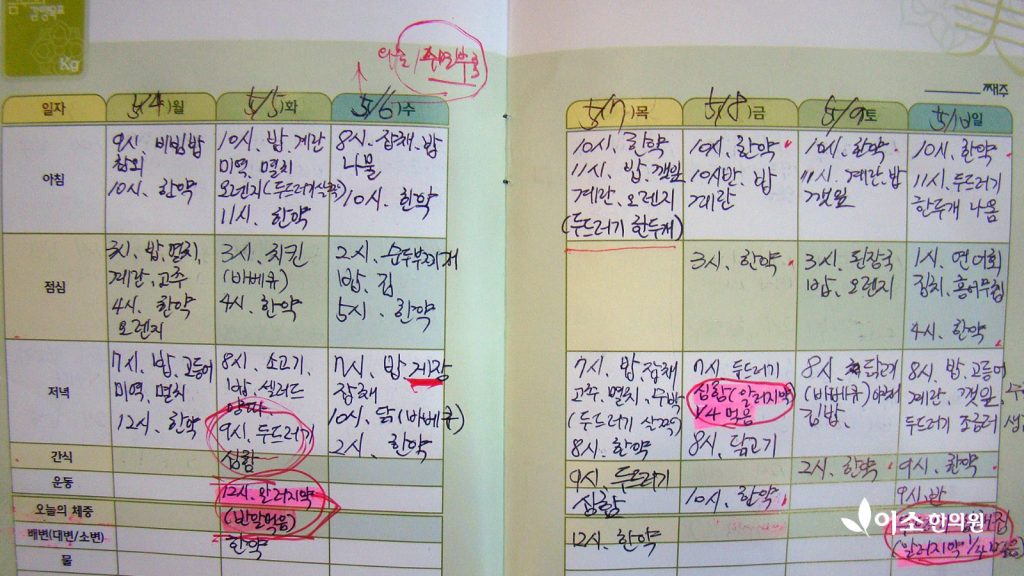 감량목표
Kg
美
째주
일자
5/4)월
5/5)화
5/6)수
5/7)목
5/8)금
5/9)토
5/10)일
아침
9시. 비빔밥
참외
10시. 한약
10시. 밥. 계란
미역. 멸치
오렌지(두드러기살짝)
11시. 한약
8시. 잡채. 밥
나물
10시. 한약
10시. 한약
11시. 밥. 깻잎
계란. 오렌지
(두드러기 한두개)
10시. 한약
10시반. 밥
계란
10시. 한약
11시. 계란. 밥
깻잎
10시. 한약
11시. 두드러기
한두개 나옴
점심
3시. 밥. 멸치.
계란. 고추
4시. 한약
오렌지
3시. 치킨
(바베큐)
4시. 한약
2시. 순두부찌개
밥. 김
5시. 한약
3시. 한약
3시. 된장국
밥. 오렌지
1시. 연어회
김치. 홍어무침
4시. 한약
저녁
7시. 밥. 고등어
미역. 멸치
12시. 한약
8시. 소고기.
밥. 샐러드
9시. 두드러기
심함
7시. 밥. 게장
잡채
10시. 닭(바베큐)
2시. 한약
7시. 밥. 잡채
고추. 멸치. 수박
(두드러기 살짝)
8시. 한약
7시. 두드러기
심함(알러지약)
1/4 먹음
8시. 닭고기
8시. 닭고기
(바베큐)야채
김밥.
8시. 밥. 고등어
계란. 깻잎.
두드러기 조금러
간식
운동
오늘의 체중
배변(대변/소변)
물
12시. 알러지약
(반알먹음)
한약
9시. 두드러기
심함
12시. 한약
10시. 한약
2시. 한약
9시. 한약
9시반
(알러지약 1/4 먹음)
이소한의원